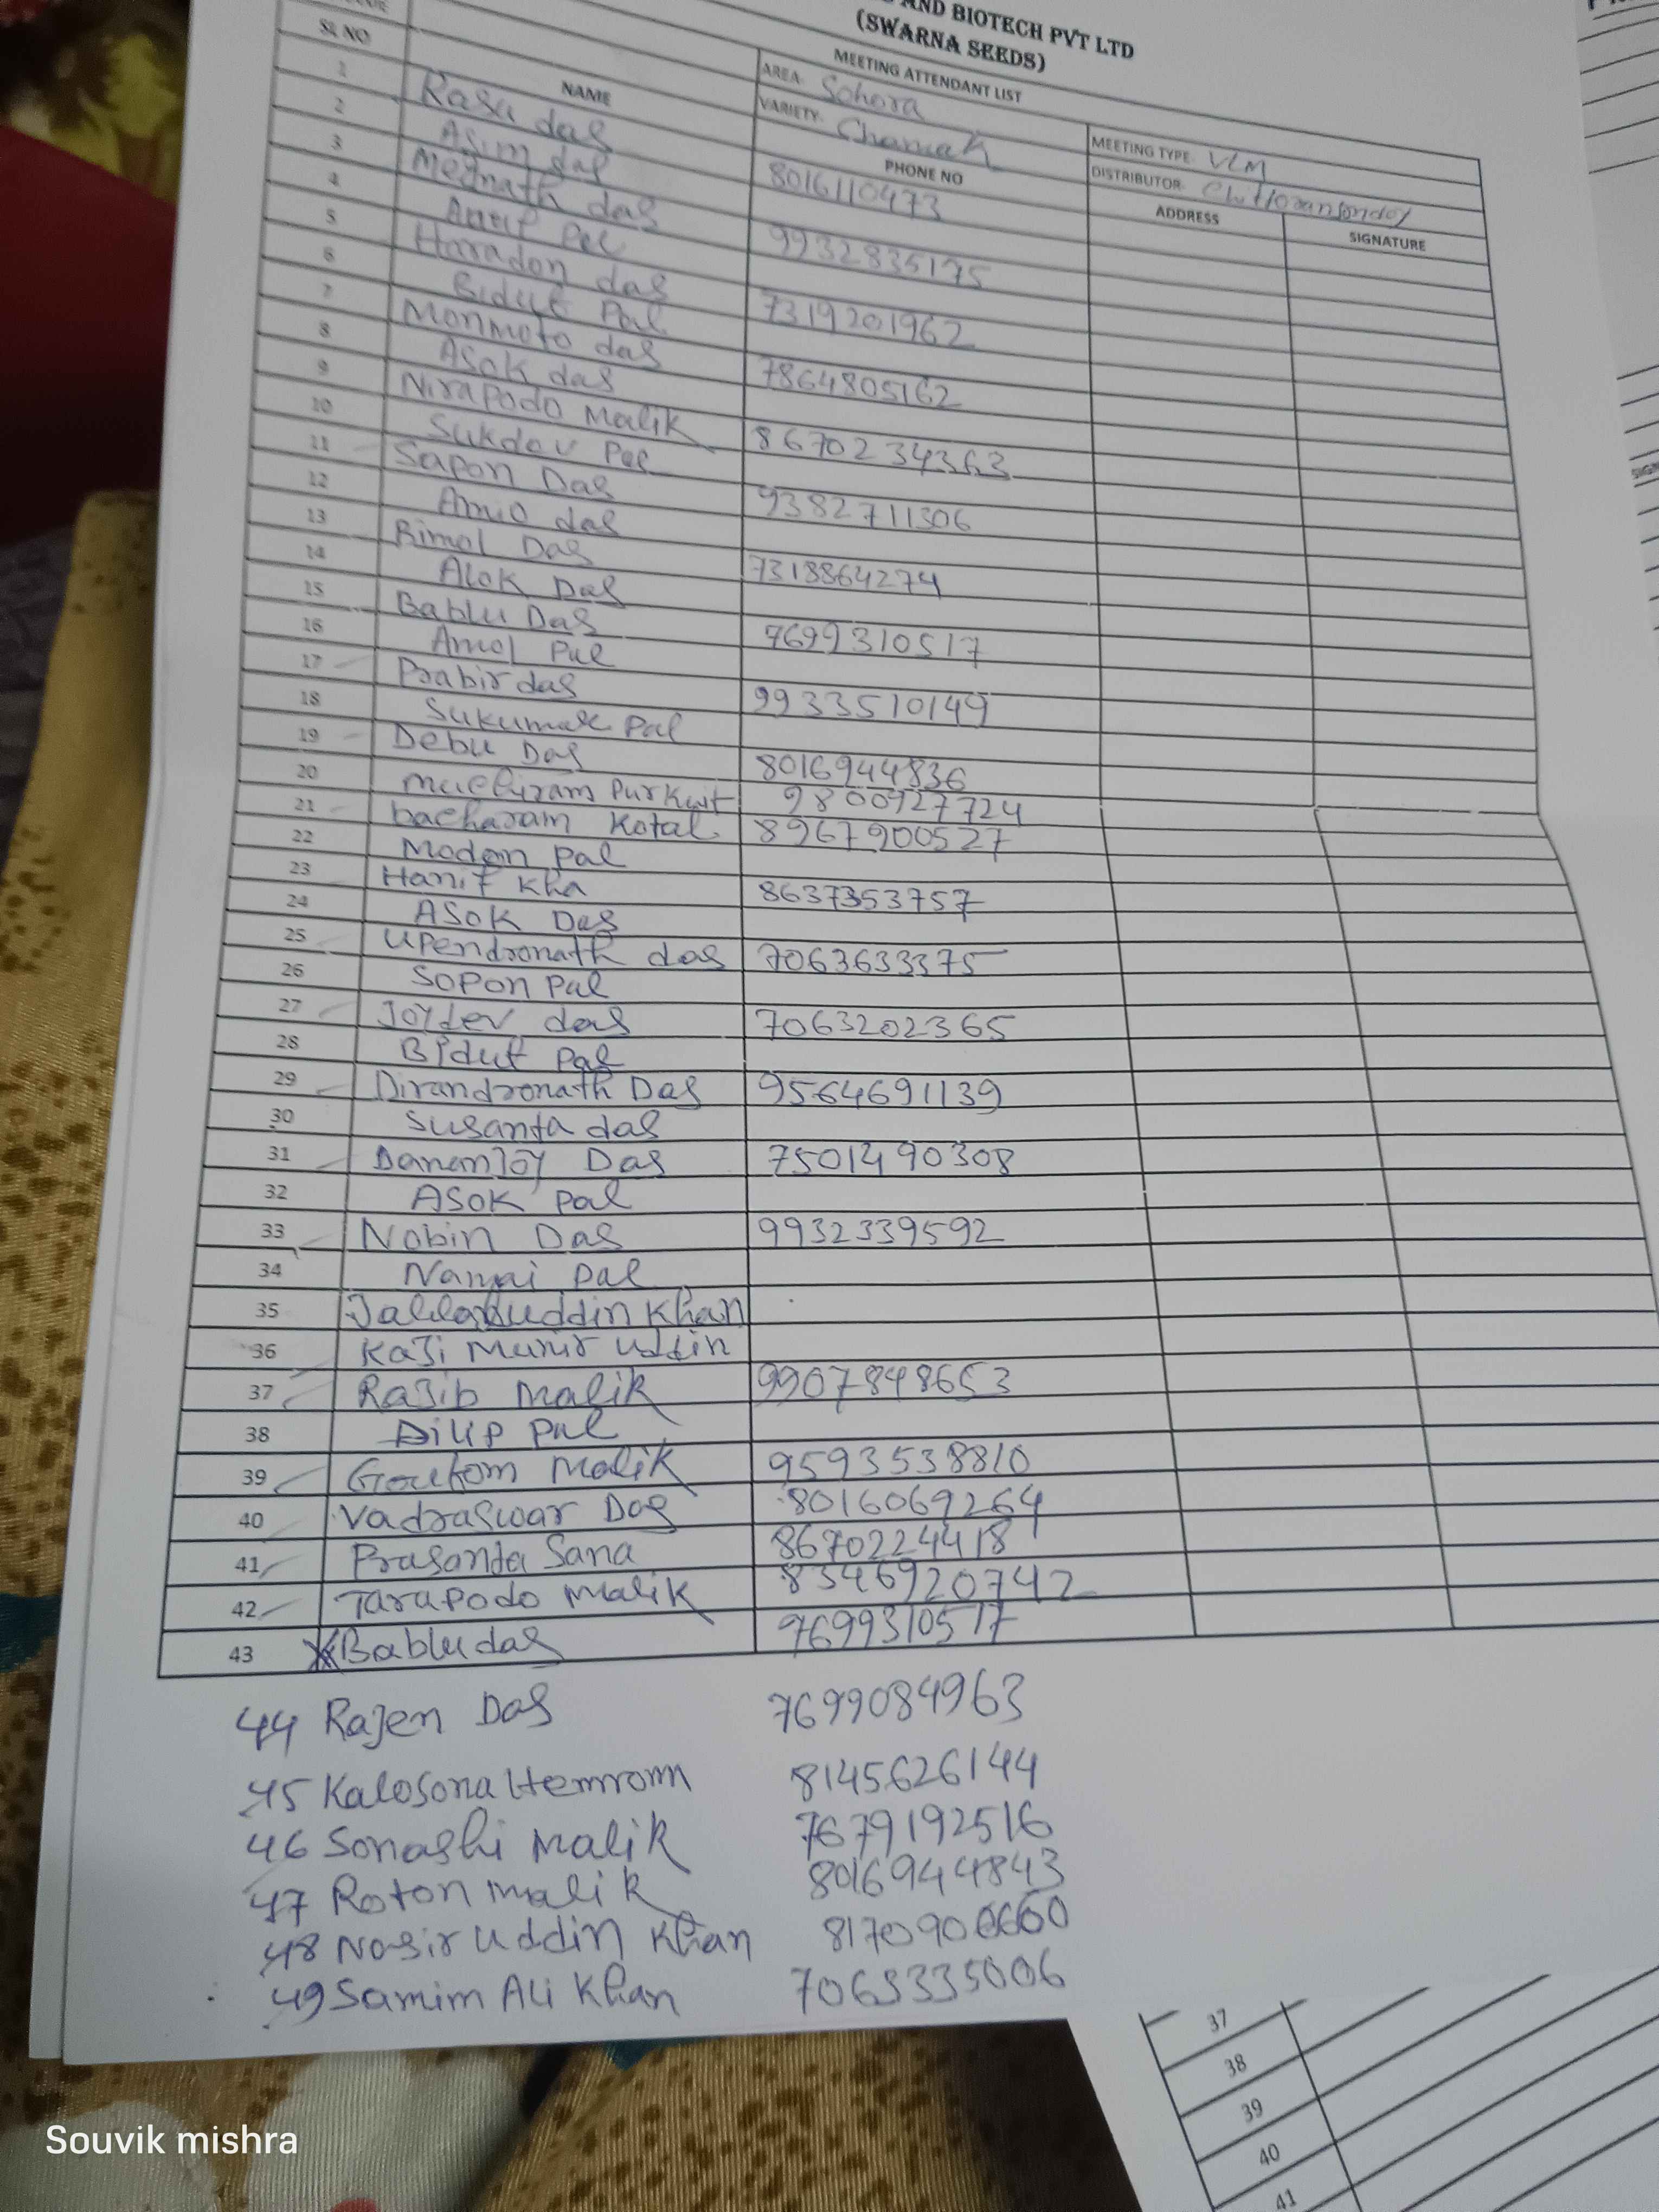 AND BIOTECH PVT LTD
(SWARNA SEEDS)
MEETING ATTENDANT LIST
AREA: Sohora MEETING TYPE: VLM
VARIETY: Chamak DISTRIBUTOR:
SL NO NAME PHONE NO ADDRESS SIGNATURE
1 Rasu das 8016110473
2 Asim das
3 Megnath das 9932835175
4 Pal
5 Haradon das 7319201962
6 Bidut Pal
7 Monmoto das 7864805162
8 Asok das
9 Nirapodo Malik 8670234363
10 Sukdev Pal
11 Sapon Das 9382711306
12 das
13 Bimol Das 7318864274
14 Alok Das
15 Bablu Das 7699310517
16 Amol Pal
17 Prabir das 9933510149
18 Sukumar Pal
19 Debu Das 8016944836
20 9800927724
21 bacharam Kotal 8967900527
22 Modon pal
23 Hanif Kha 8637353757
24 ASOK Das
25 Upendronath das 7063633375
26 Sopon pal
27 Joydev das 7063202365
28 Bidut pal
29 Dirandronath Das 9564691139
30 Susanta das
31 Dananjoy Das 7501490308
32 ASOK pal
33 Nobin Das 9932339592
34 pal
35 Khan
36 Kaji Munir uddin
37 Rajib malik 9907848653
38 Dilip pal
39 Goutom Malik 9593538810
40 Vadraswar Das 8016069264
41 Prasanta Sana 8670224418
42 Tarapodo malik 8346920742
43 Bablu das 7699310517
44 Rajen Das 7699084963
45 Kalosona Hemrom 8145626144
46 Sonashi Malik 7679192516
47 Roton malik 8016944843
48 Nasir uddin Khan
49 Samim Ali Khan
37
38
39
40
41
Souvik mishra